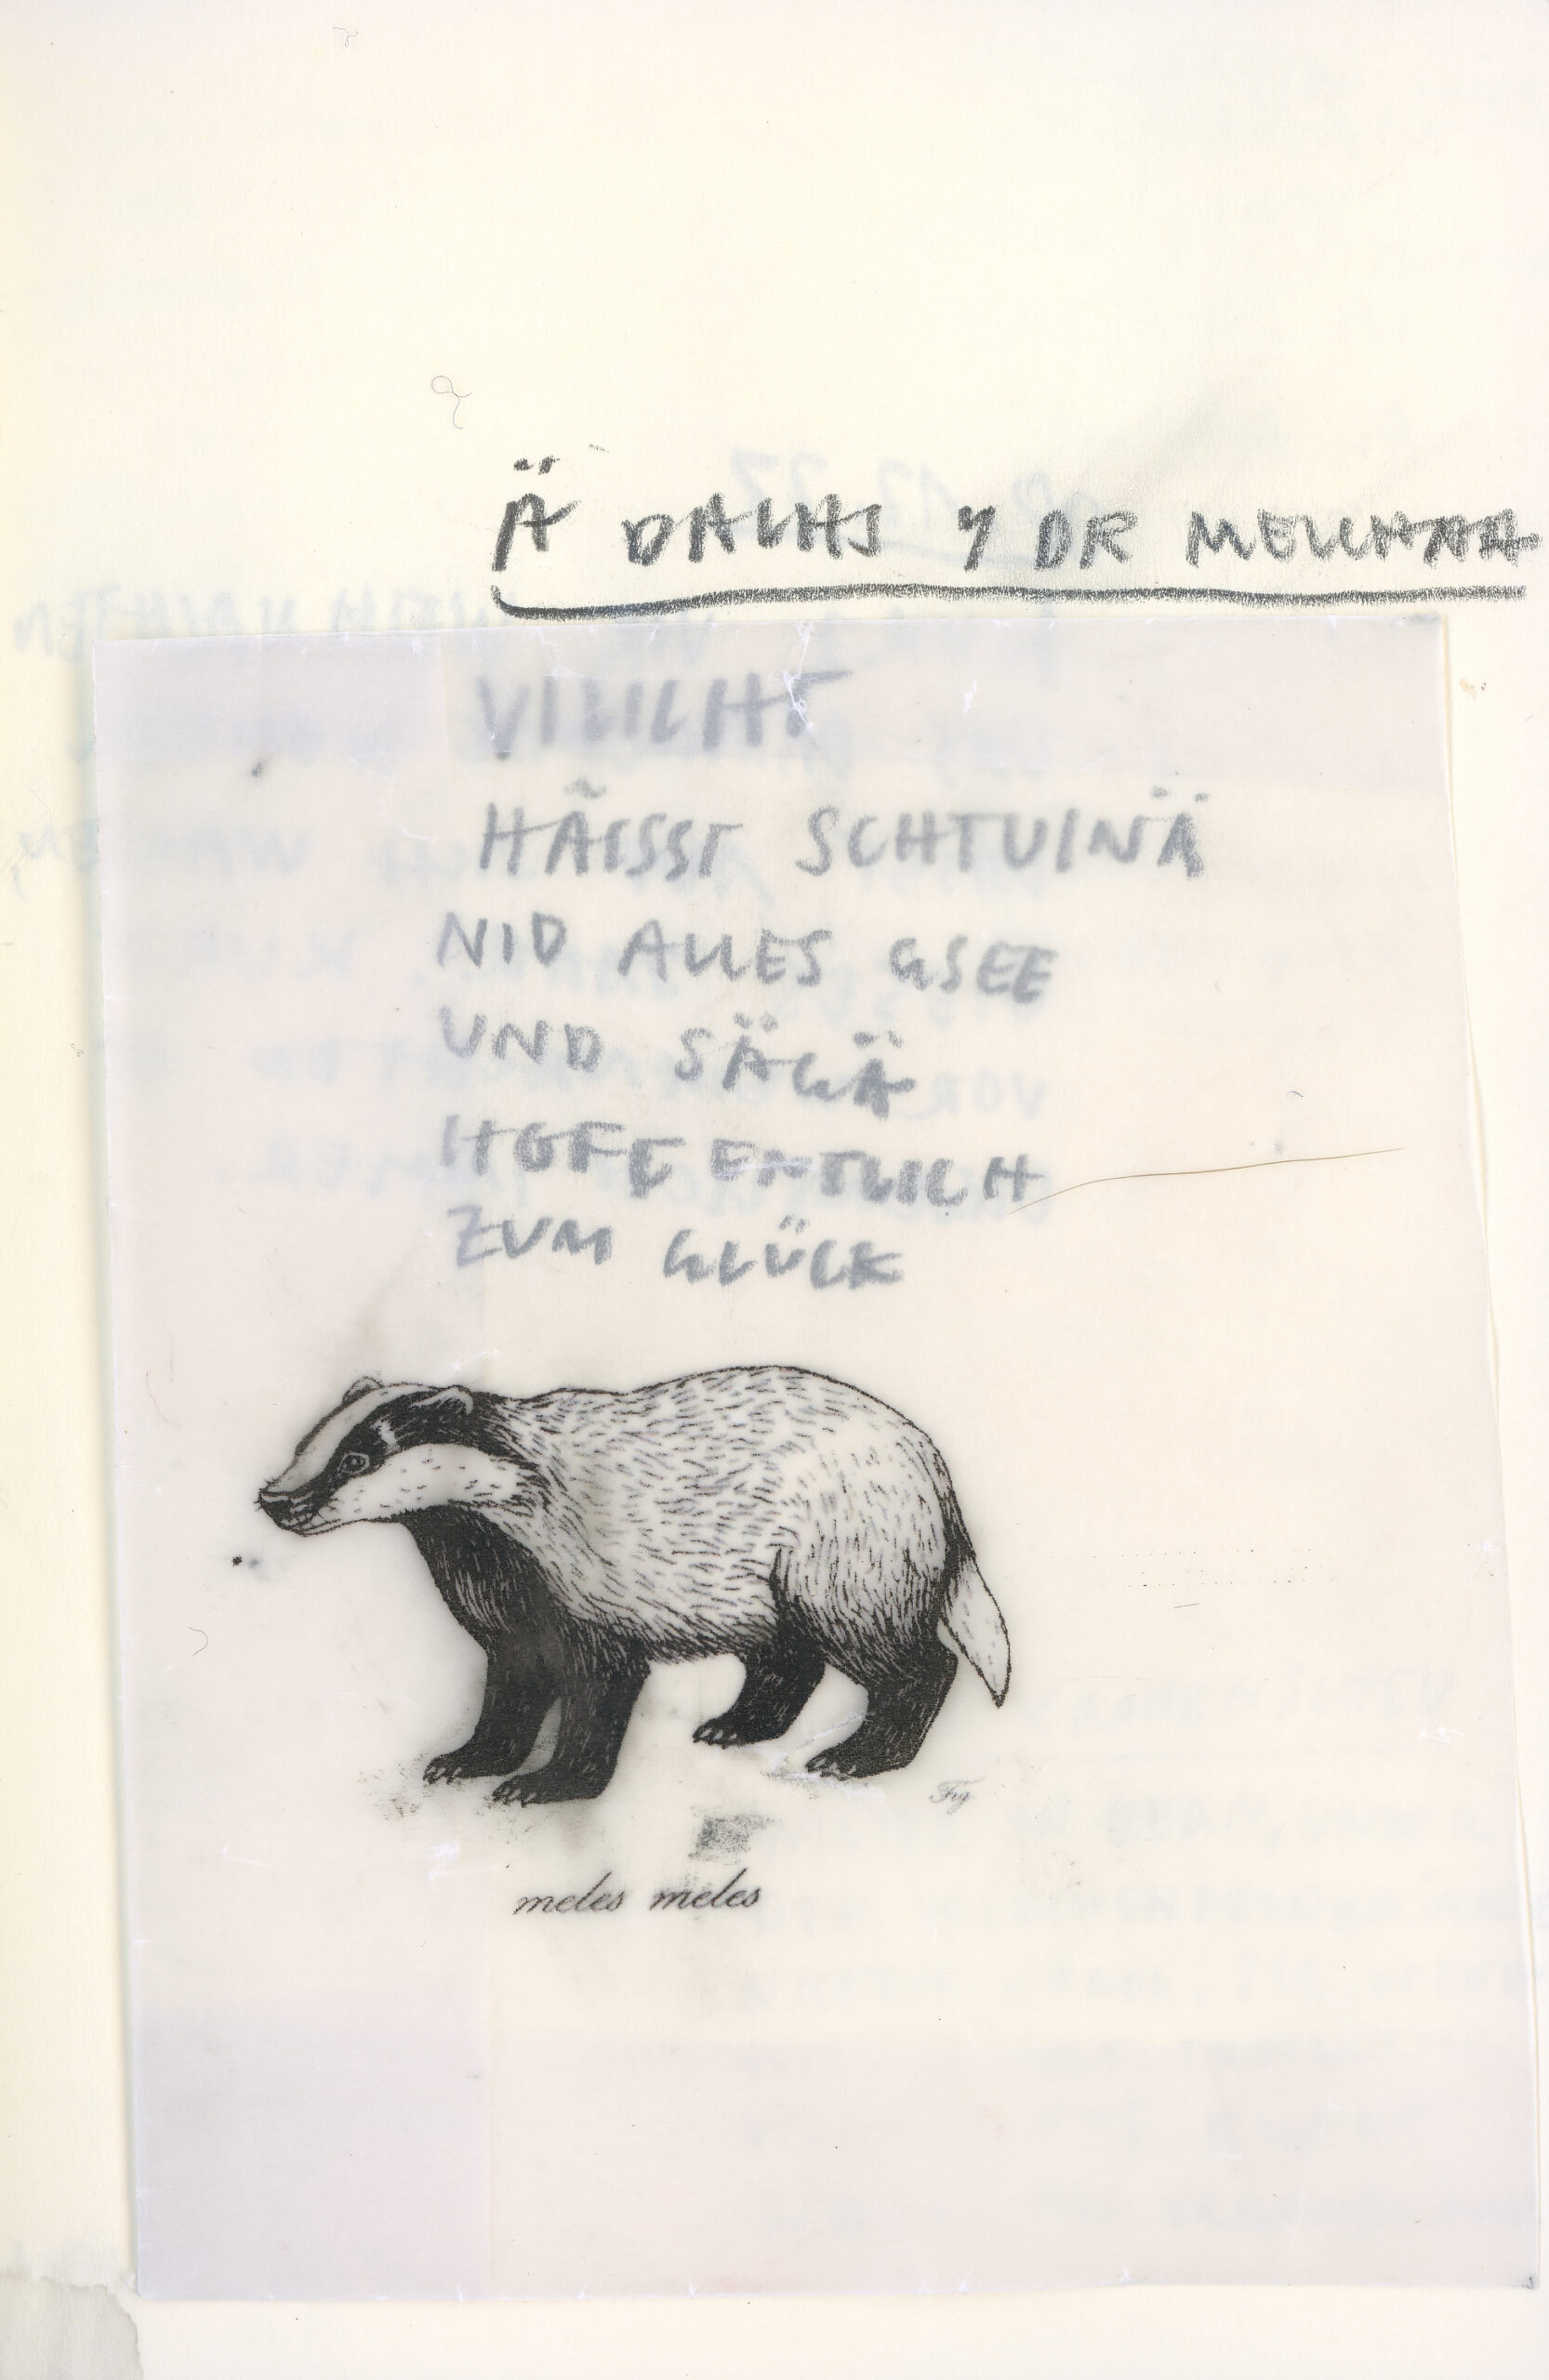 Ä DACHS Y DR MELCHAA
VILILCHT
HÄISST SCHTUINÄ
NID ALLES GSEE
UND SÄGÄ
HOFFENTLICH
ZUM GLÜCK
Fig.
meles meles